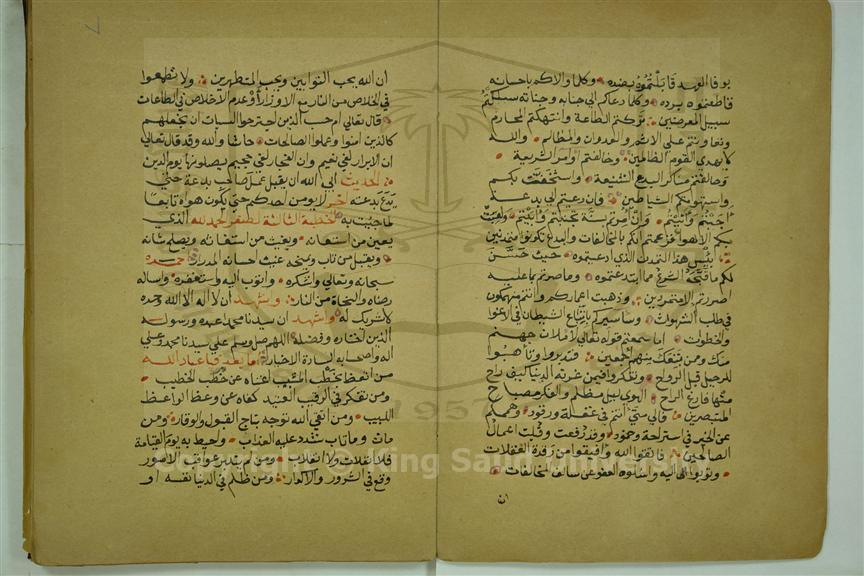 يوفا الوعيد قابلتموه بضده وكلما والاكم باحسانه
قاطعتموه برده وكلما دعاكم الى جنابه وجناته سلكتم
سبيل المعرضين تركتم الطاعة وانتهكتم المحارم
وتعاونتم على الاثم والعدوان والمظالم والله
لا يهدى القوم الظالمين وخالفتم اوامر الشريعة
وحالفتم مناكر البدع الشنيعة واستخفت بكم
واستهوتكم الشياطين فان دعيتم الى بدعة
اجبتم واتيتم وان امرتم بسنة تخليتم وابيتم ولعبت
بكم الاهوا فزعمتم انكم بالمخالفات والبدع تكونوا متمدنين
بئس هذا التمدن الذى ادعيتموه حيث حسن
لكم ما قبحه الشرع مما ابتدعتموه وما صرتم بما عليه
اصررتم الا متمردين وذهبت اعماركم وانتم منهمكون
فى طلب الشهوات وسا سيركم باتباع الشيطان فى
والخطوات اما سمعتم قوله تعالى لاملأن جهنم
منك وممن تبعك منهم اجمعين فتدبروا وتأهبوا
للرحيل قبل الرواح وتفكروا فيمن غرته الدنيا كيف راح
منها فارغ الراح الهوى ليل مظلم والفكر مصباح
المتبصرين فالى متى انتم فى غفلة ورقود وهممكم
عن الخير فى استراحة وقد رفعت وقلت اعمال
الصالحين فاتقوا الله وافيقوا من رقدة الغفلات
وتوبوا الى اليه واسئلوه العفو عن سالف المخالفات
ان
ان الله يحب التوابين ويحب المتطهرين ولا تطمعوا
فى الخلاص من النار مع الاوزار او عدم الاخلاص فى الطاعات
قال تعالى ام حسب الذين اجترحوا السيات ان نجعلهم
كالذين امنوا وعملوا الصالحات حاشا والله وقد قال تعالى
ان الابرار لفى نعيم وان الفجار لفى جحيم يصلونها يوم الدين
الحديث ابى الله ان يقبل عمل صاحب بدعة حتى
يدع بدعته اخر لا يومن احدكم حتى يكون هواه تابعا
لما جيت به الخطبة الثالثة لصفر الحمد لله الذى
يعين من استعانه ويغيث من استغاثه ويصلح شانه
ويقبل من تاب ويمنحه غيث احسانه المدرار احمده
سبحانه وتعالى واشكره واتوب اليه واستغفره واساله
رضاه والنجاة من النار واشهد ان لا اله الا الله وحده
لا شريك له واشهد ان سيدنا محمدا عبده ورسوله
الذى اختاره وفضله اللهم صل وسلم على سيدنا محمد وعلى
اله واصحابه السادة الاخيار اما بعد فيا عباد الله
من اتعظ بخطب الشيب اغناه عن خطب الخطيب
ومن تفكر فى الرقيب العتيد كفاه عن وعظ الواعظ
اللبيب ومن اتقى الله توجه بتاج القبول والوقار ومن
مات وما تاب شدد عليه العذاب ولحيط به يوم القيامة
فلا انفلات ولا انقلاب ومن لم يتدبر عواقب الامور
وقع فى الشرور والاكدار ومن ظلم فى الدنيا نفسه او
Copyright © King Saud University
1957